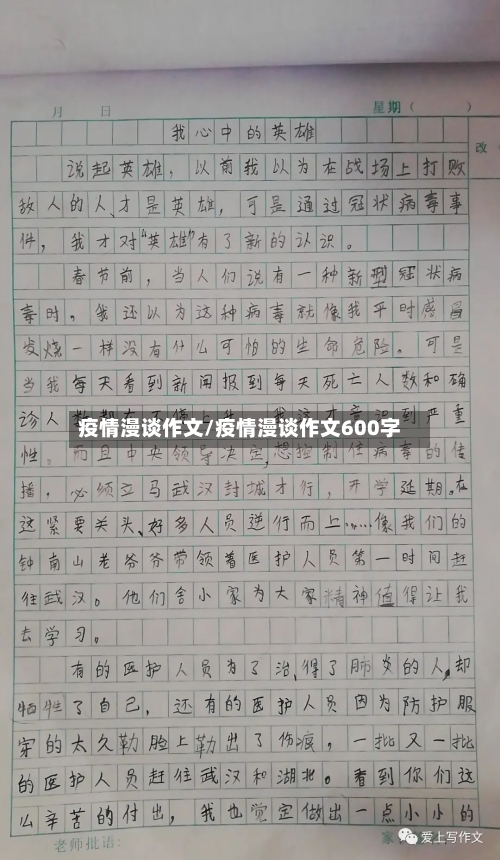 月 日 星期( )
我心中的英雄
改
说起英雄，以前我以为在战场上打败
敌人的人，才是英雄，可是通过冠状病毒事
件，我才对“英雄”有了新的认识。
春节前，当人们说有一种新型冠状病
毒时，我还以为这种病毒就像我平时感冒
发烧一样没有什么可怕的生命危险。可是
当我每天看到新闻报到每天死亡人数和确
诊人
疫情漫谈作文/疫情漫谈作文600字
严重
性。而且中央领导决定，想控制住病毒的传
播，必须立马武汉封城才行，开学延期。在
这紧要关头、好多人员逆行而上……像我们的
钟南山老爷爷带领着医护人员第一时间赶
往武汉。他们舍小家为大家精神值得让我
去学习。
有的医护人员为了治得了肺炎的人，却
牺牲了自己，还有的医护人员因为防护服
穿的太久勒脸上勒出了伤痕，一批又一批
的医护人员赶往武汉和湖北。看到你们这
么辛苦的付出，我也觉定做出一点小小的
老师批语： 家
爱上写作文